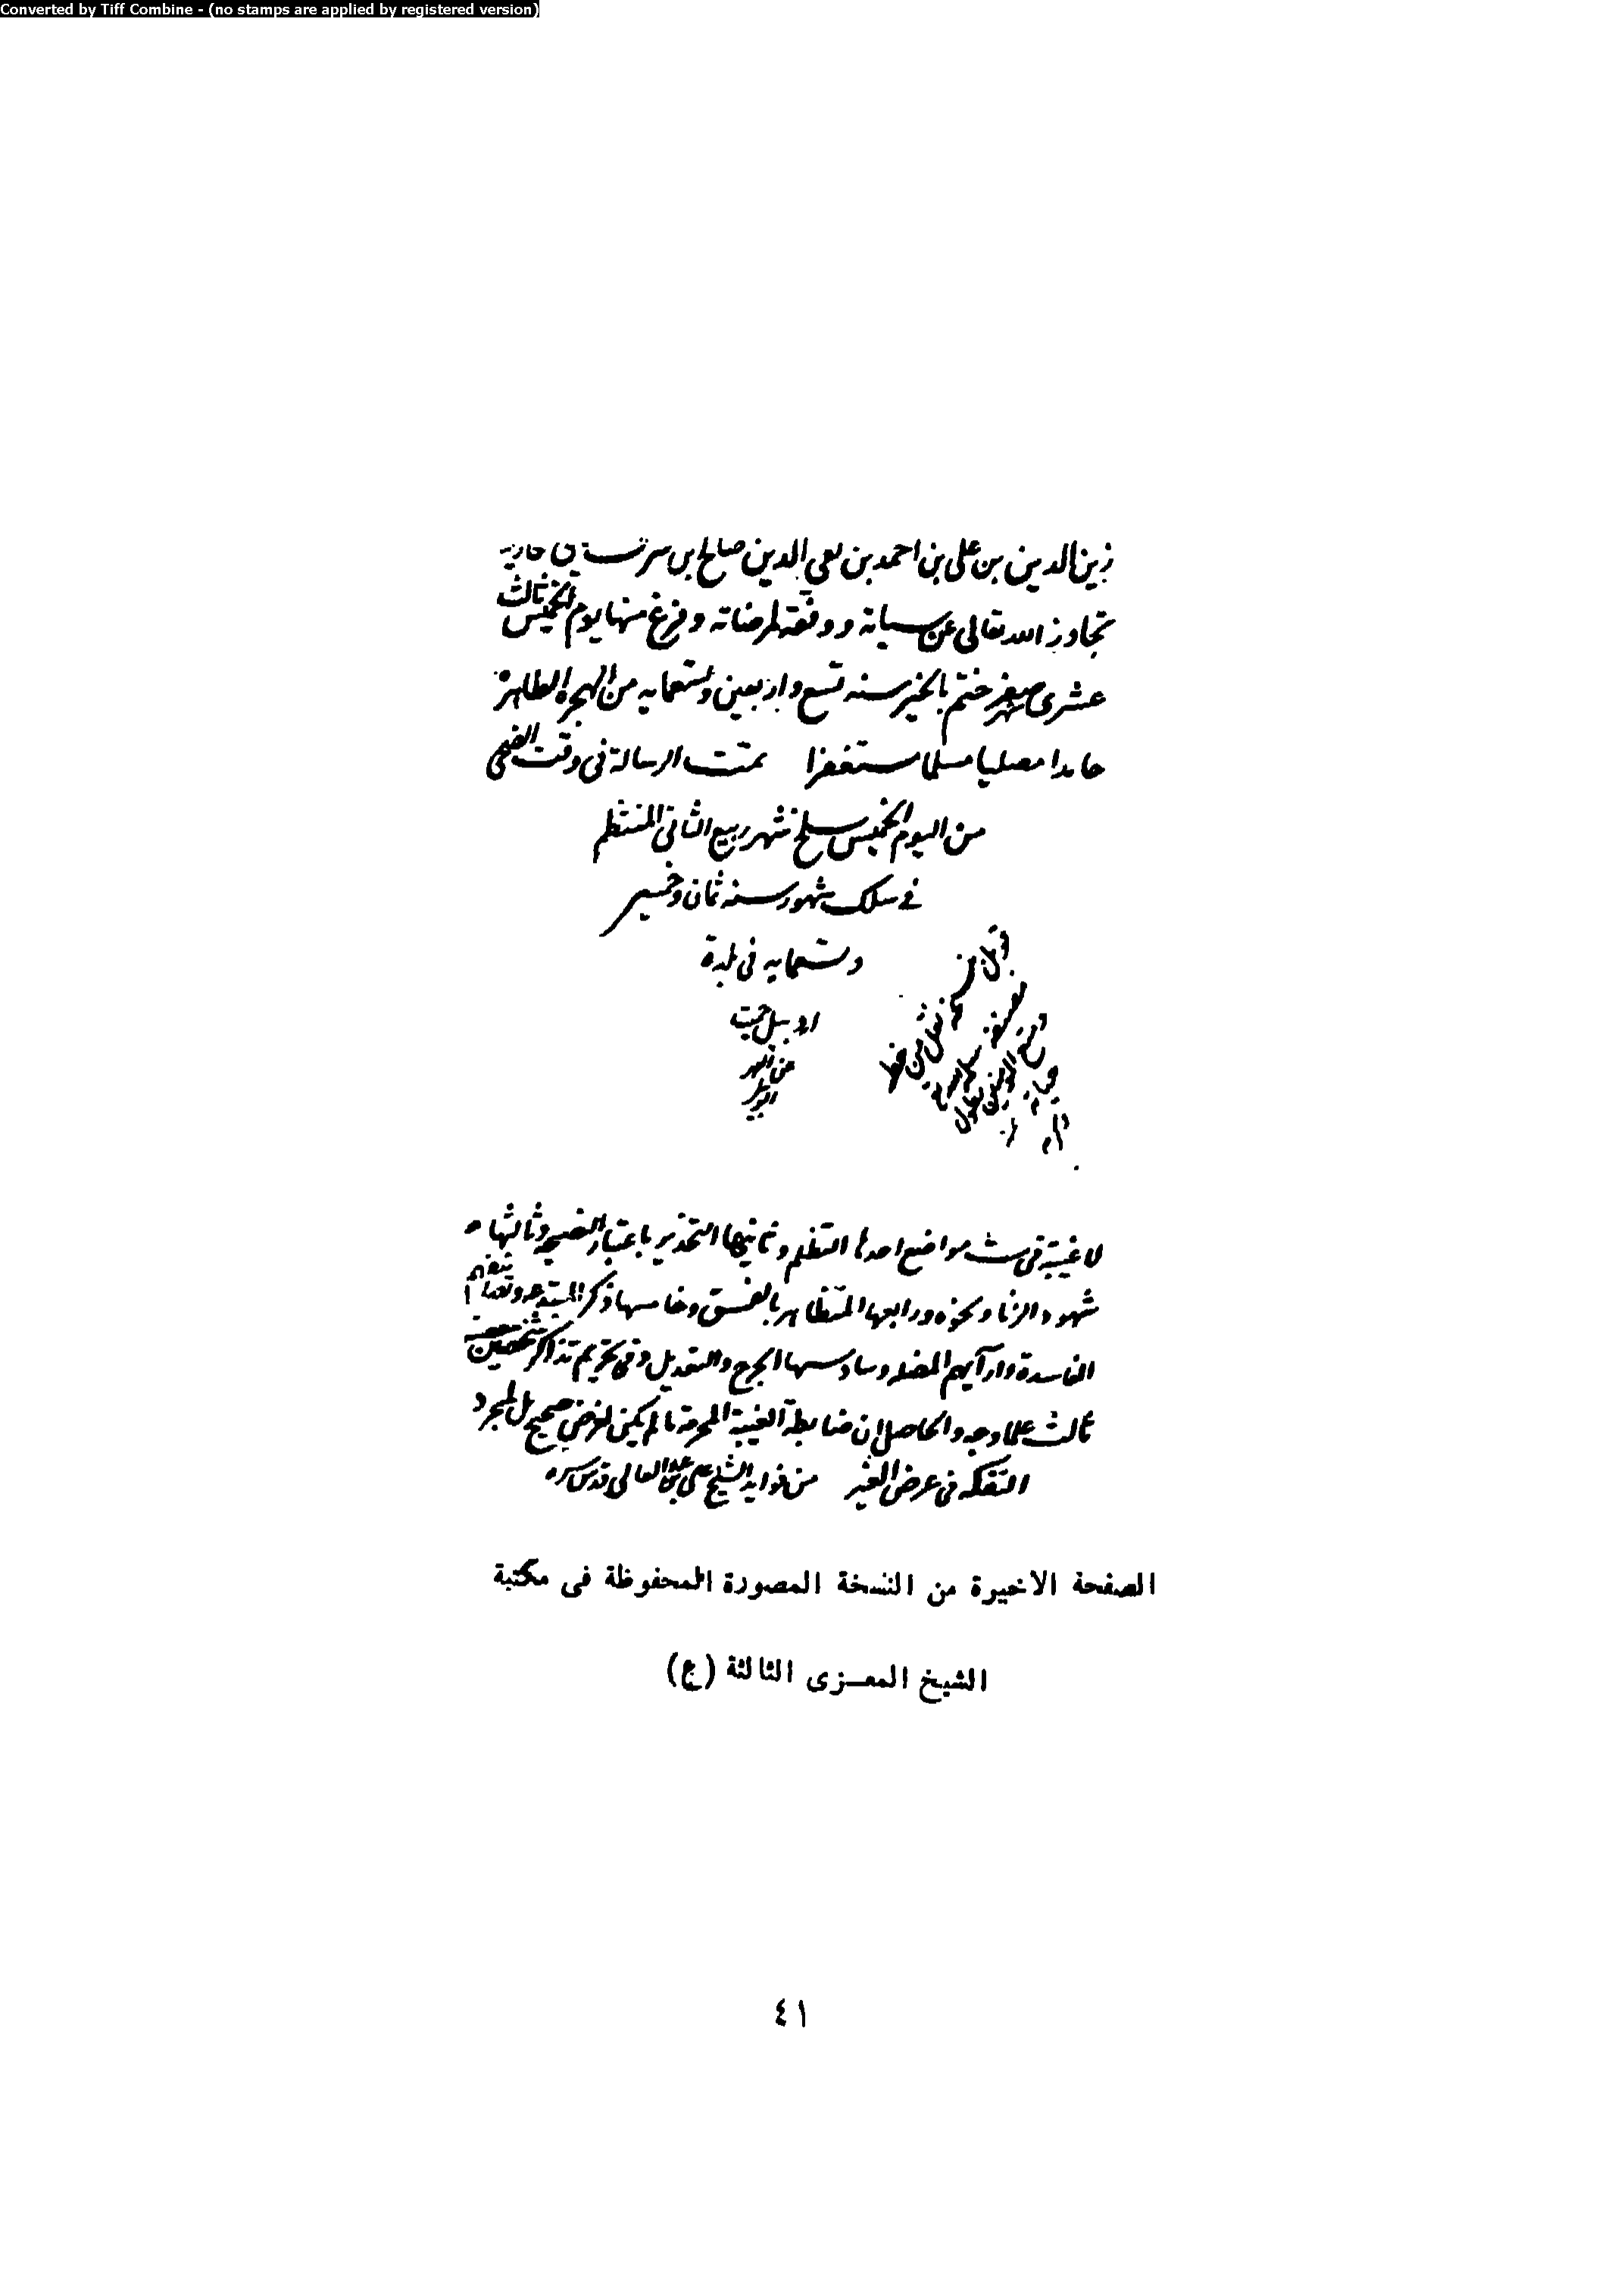 Converted by Tiff Combine - (no stamps are applied by registered version)
زين الدين بن على بن احمد بن تقي الدين صالح بن
تجاوز الله تعالى عن سياته ووفقه لمرضاته وفرغ منها يوم الخميس ثالث
عشرى شهر صفر ختم بالخير سنه تسع واربعين وتسعمايه من الهجرة الطاهرة
حامدا مصليا مسلما مستغفرا تمت الرسالة فى وقت الضحى
من اليوم الخميس سلخ شهر ربيع الثانى المنتظم
فے سلك شهور سنه ثمان وخمسين
وتسعمايه فى بلدة
لا غيبة فى ست مواضع احدها التظلم وثانيها التحذير باعتبار النصيحة وثالثها
شهود الزنا ونحوه ورابعها المتظاهر بالفسق وخامسها ذكر المبتدعه
الفاسدة وارآيهم المضله وسادسها الجرح والتعديل وفى تحريم تذاكر شخصين
ثالث علما وجه والحاصل ان ضابطة الغيبة المحرمة ما لم يكن لغرض صحيح بل لمجرد
التفكه فى عرض الغير من فوايد الشيخ على بن عبد العالى قدس سره
الصفحة الاخيرة من النسخة المصورة المحفوظة فى مكتبة
الشيخ المعزى الثالثة (ع)
٤١